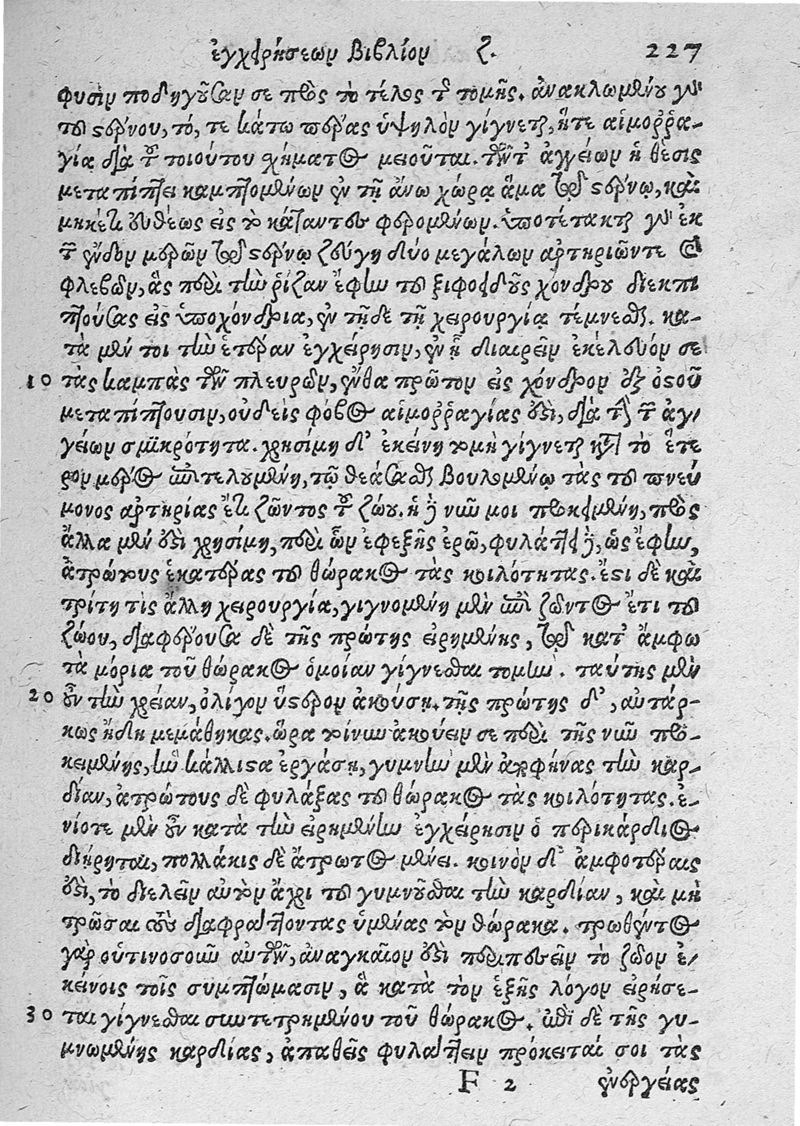 ἐγχειρήσεωμ Βιβλίομ ζ. 227
φυσὶμ ποδηγοῦσάμ σε πρὸς τὸ τέλος τῆς τομῆς. ἀνακλωμένου γὰρ
τοῦ στέρνου, τό, τε κάτω πέρας ὑψηλὸμ γίγνεται, ἥτε αἱμοῤῥα-
γία διὰ τοῦ τοιούτου σχήματος μειοῦται. τῶν τ' ἀγγείωμ ἡ θέσις
μεταπίπτει καμπτομένωμ ἐν τῇ ἄνω χώρᾳ ἅμα τῷ στέρνῳ, καὶ
μηκέτι εὐθέως εἰς τὸ κάταντες φερομένωμ. ὑποτέτακται γὰρ ἐκ
τῶν ἔνδομ μερῶμ τῷ στέρνῳ ζεύγη δύο μεγάλωμ ἀρτηριῶντε καὶ
φλεβῶμ, ἃς περὶ τὴν ῥίζαν ἔφην τοῦ ξιφοειδοῦς χόνδρου διεκπι
πτούσας εἰς ὑποχόνδρια, ἐν τῇδε τῇ χειρουργίᾳ τέμνεσθαι. κα-
τὰ μέν τοι τὴν ἑτέραν ἐγχείρησιμ, ἐν ᾗ διαιρεῖμ ἐκέλευόμ σε
10 τὰς καμπὰς τῶν πλευρῶμ, ἔνθα πρῶτομ εἰς χόνδρομ ἐξ ὀστοῦ
μεταπίπτουσιμ, οὐδεὶς φόβος αἱμοῤῥαγίας ἐστὶ, διὰ τὴν τῶν ἀγ-
γείωμ σμικρότητα. χρησίμη δ' ἐκείνη τομὴ γίγνεται κατὰ τὸ ἕτε
ρομ μέρος ἐπιτελουμένη, τῷ θεάσασθαι βουλομένῳ τὰς τοῦ πνεύ
μονος ἀρτηρίας ἔτι ζῶντος τοῦ ζώου. ἡ δὲ νῦν μοι προκειμένη, πρὸς
ἄλλα μέν ἐστι χρησίμη, περὶ ὧμ ἐφεξῆς ἐρῶ, φυλάττει δὲ, ὡς ἔφην,
ἀτρώτους ἑκατέρας τοῦ θώρακος τὰς κοιλότητας. ἔστι δὲ καὶ
τρίτη τὶς ἄλλη χειρουργία, γιγνομένη μὲν ἐπὶ ζῶντος ἔτι τοῦ
ζώου, διαφέρουσα δὲ τῆς πρώτης εἰρημένης, τῷ κατ' ἄμφω
τὰ μόρια τοῦ θώρακος ὁμοίαν γίγνεσθαι τομήν. ταύτης μὲν
20 οὖν τὴν χρείαν, ὀλίγομ ὕστερομ ἀκούσῃ. τῆς πρώτης δ', αὐτάρ-
κως ἤδη μεμάθηκας. ὥρα τοίνυν ἀκούειμ σε περὶ τῆς νῦν προ-
κειμένης, ἣν κάλλιστα ἐργάσῃ, γυμνὴν μὲν ἀποφήνας τὴν καρ-
δίαν, ἀτρώτους δὲ φυλάξας τοῦ θώρακος τὰς κοιλότητας. ἐ-
νίοτε μὲν οὖν κατὰ τὴν εἰρημένην ἐγχείρησιμ ὁ περικάρδιος
διῄρηται, πολλάκις δὲ ἄτρωτος μένει. κοινὸμ δ' ἀμφοτέραις
ἐστὶ, τὸ διελεῖμ αὐτὸμ ἄχρι τοῦ γυμνοῦσθαι τὴν καρδίαν, καὶ μὴ
τρῶσαι τοὺς διαφράττοντας ὑμένας τὸμ θώρακα. τρωθέντος
γὰρ οὑτινοσοῦν αὐτῶν, ἀναγκαῖομ ἐστὶ περιπεσεῖμ τὸ ζῶομ ἐ-
κείνοις τοῖς συμπτώμασιμ, ἃ κατὰ τὸμ ἑξῆς λόγομ εἰρήσε-
30 ται γίγνεσθαι συντετρημένου τοῦ θώρακος. ἐπὶ δὲ τῆς γυ-
μνωμένης καρδίας, ἀπαθεῖς φυλάττειμ πρόκειταί σοι τὰς
F 2 ἐνεργείας